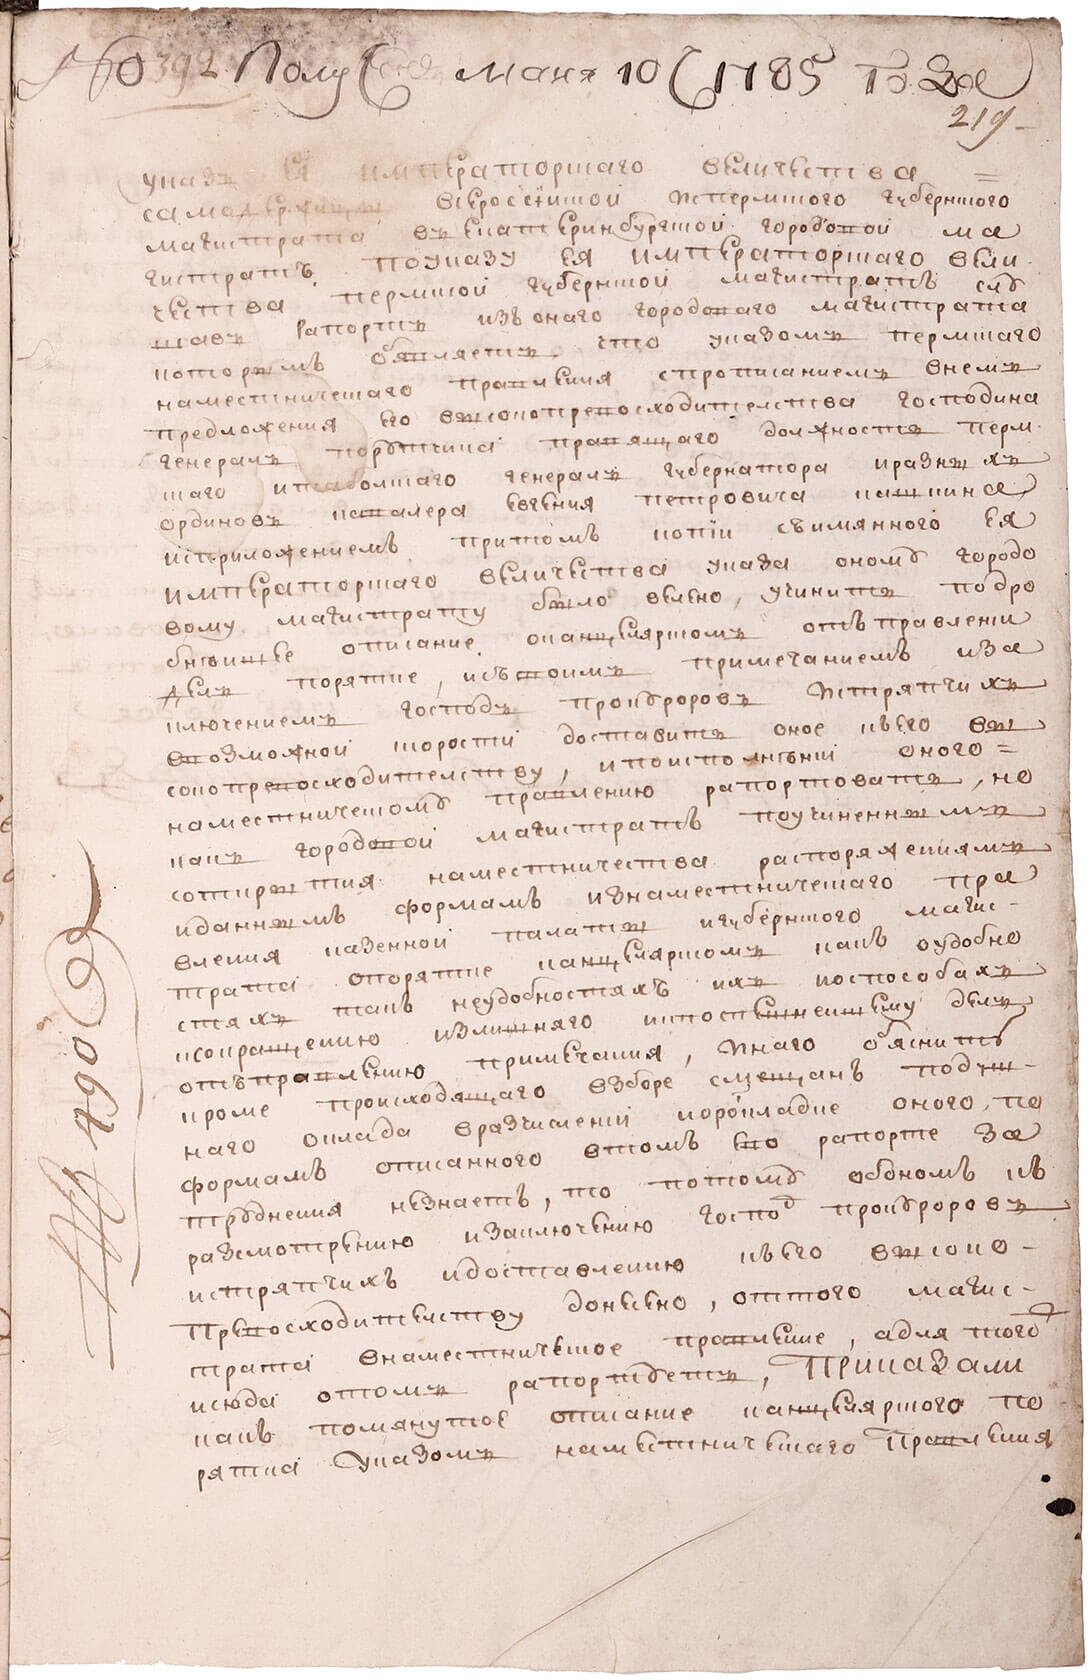 № 392 Полу[чен] мая 10 1785 го[да]
219
указъ ея императорскаго величества =
самодержицы всеросейской ис пермского губернского
магистрата въ екатеринбургской городовой ма
гистратъ. по указу ея императорскаго вели
чества пермской губернской магистратъ слу
шавъ рапортъ изъ онаго городоваго магистрата
которымъ объявляетъ что указомъ пермскаго
наместническаго правления с прописаниемъ в немъ
предложения его высокопревосходительства господина
генералъ порутчика правящаго должность перм
скаго и тоболскаго генералъ губернатора и разныхъ
ординовъ кавалера евгения петровича кашкина
и с приложениемъ притомъ копии съ имянного ея
императорскаго величества указа оному городо
вому магистрату было велено, учинить подро
бнъйшее описание о канцелярскомъ отъправлени
делъ порятке, и съ своимъ примечаниемъ и за
ключениемъ господъ прокуроровъ и стряпчихъ
в возможной скорости доставить оное къ его вы
сокопревосходительству, и по исполнънии оного =
наместническому правлению рапортовать, но
какъ городовой магистратъ по учиненнымъ
с открытия наместничества распоряжениямъ
и даннымъ формамъ из наместническаго пра
вления казенной палаты и губернского магис-
трата о порятке канцелярскомъ какъ о удобно
стяхъ такъ неудобностяхъ ихъ и о способахъ
к сокращению излишняго и поспешнейшему делъ
отъправлению примечания, инаго объяснить
кроме происходящаго в зборе с мещанъ подуш-
наго оклада в разчислении и о роскладке оного, по
формамъ описанного в томъ ево рапорте за
труднения незнаетъ, то потому об ономъ къ
разсмотрению и заключению господ прокуроровъ
и стряпчихъ и доставлению къ его высоко-
превосходительству донесено, от того магис-
трата в наместническое правление, а для того
и сюда о томъ рапортуетъ, Приказали
какъ помянутое описание канцелярского по
рятка указомъ наместническаго правления
№ 490